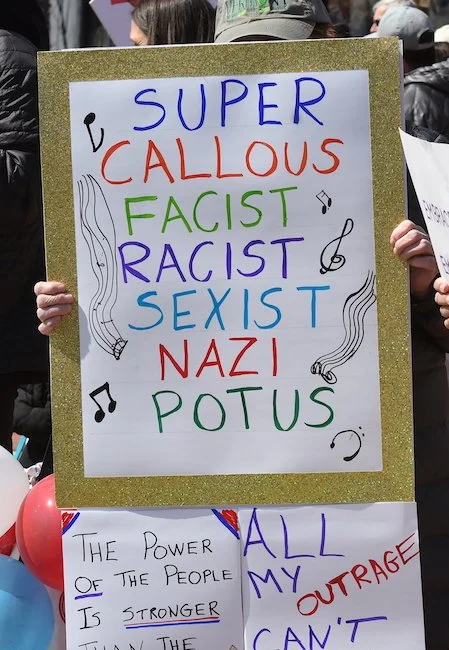 SUPER
CALLOUS
FACIST
RACIST
SEXIST
NAZI
POTUS
THE POWER
OF THE PEOPLE
IS STRONGER
THAN THE
ALL
MY
OUTRAGE
CAN'T